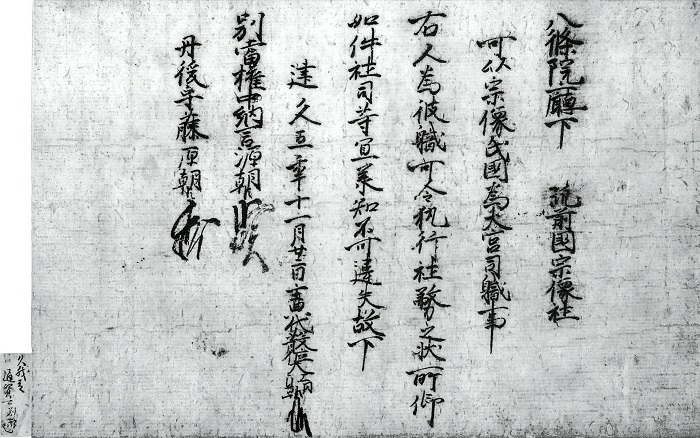 八條院廳下 筑前國宗像社
可以宗像氏國為大宮司職事
右人為彼職可令執行社務之状所仰
如件社司等宜承知不可違失故下
建久五年十一月廿
別當權中納言源朝
丹後守藤原朝